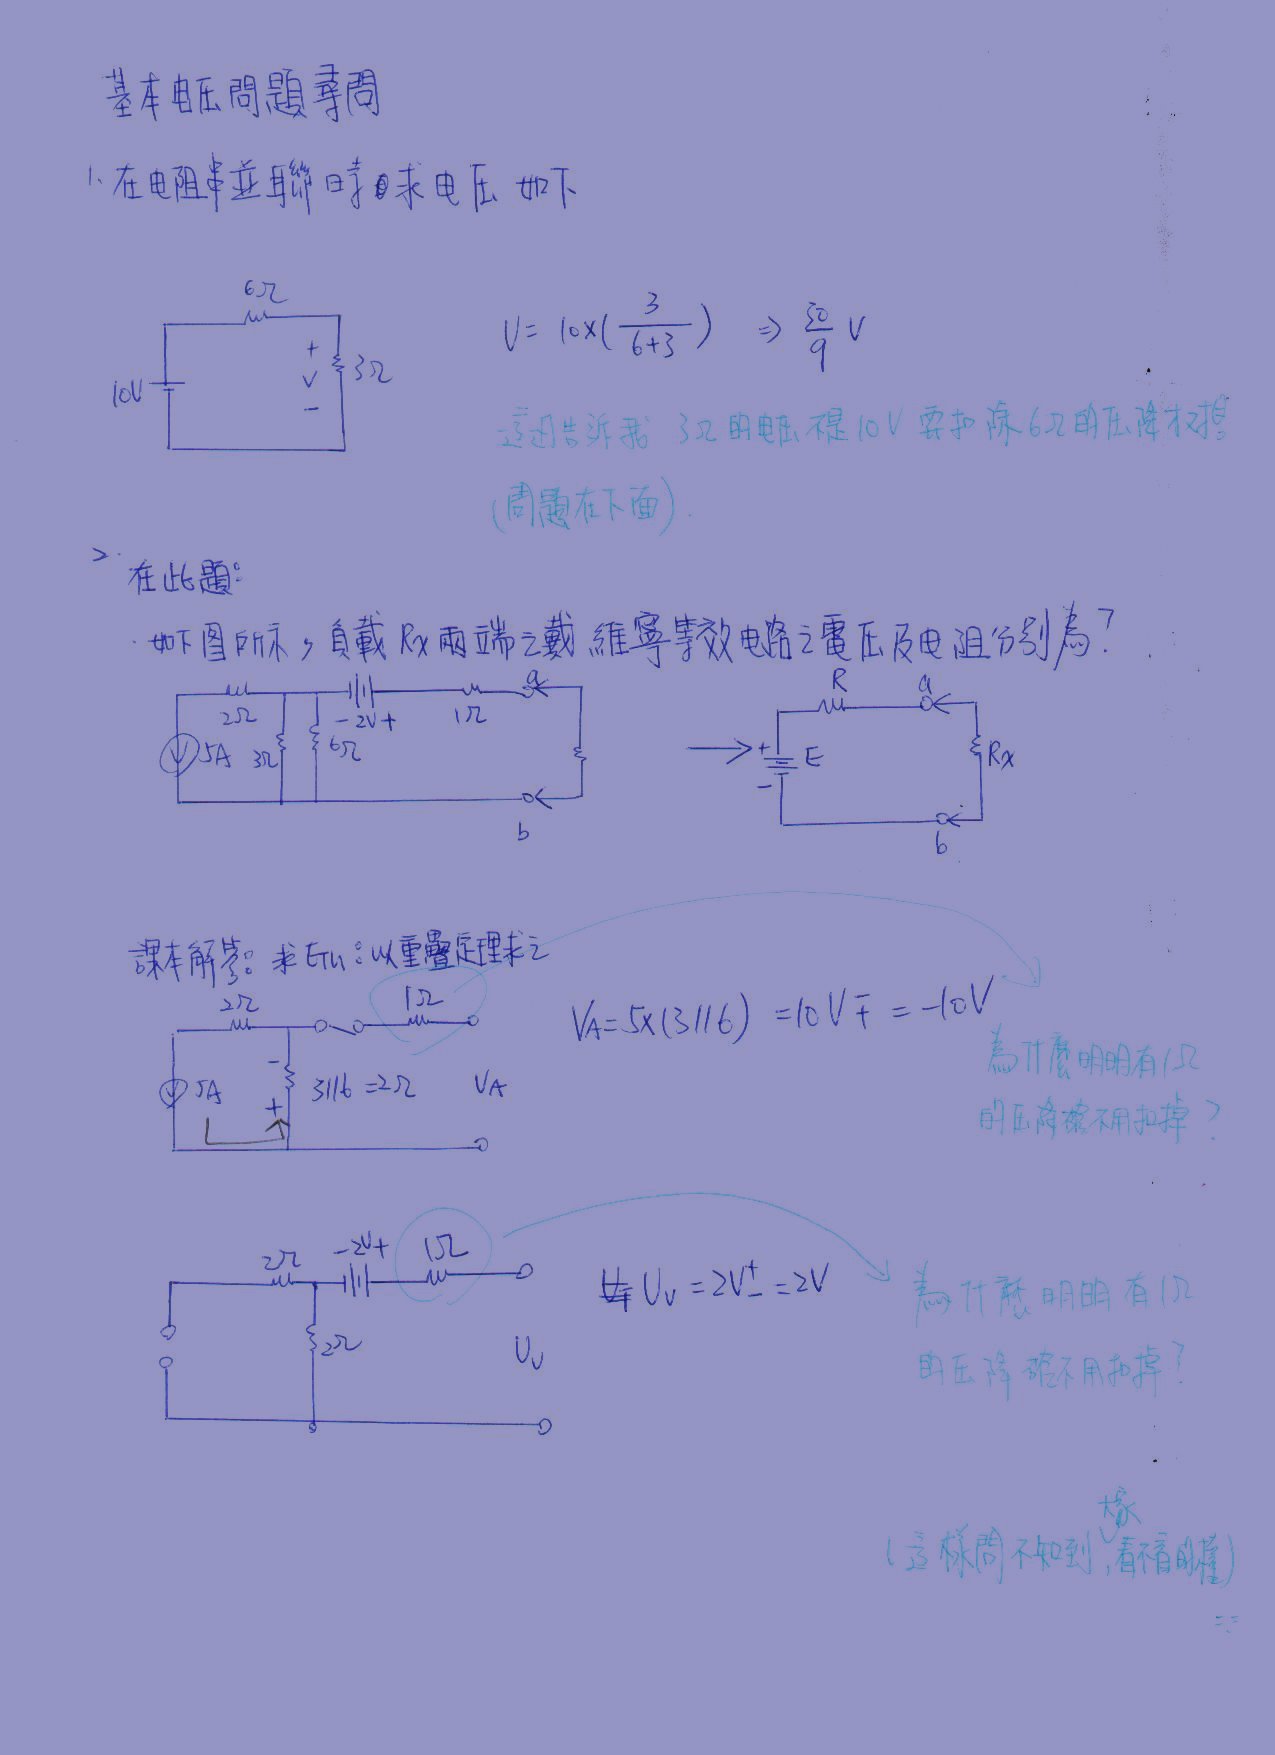 基本电压問題尋問
1. 在电阻串並聯時求电压 如下
6Ω
10V
+
V
-
3Ω
V = 10×(3/(6+3)) ⇒ 30/9 V
這題告訴我 3Ω的电压不是10V 要扣除6Ω的压降才對
(問題在下面).
2.
在此題:
如下图所示，負載 Rx 兩端之戴維寧等效电路之電压及电阻分別為?
2Ω
-2V+
1Ω
a
5A
3Ω
6Ω
b
R
a
+
E
-
Rx
b
課本解答: 求ETH: 以重疊定理求之
2Ω
1Ω
5A
-
+
3//6=2Ω
VA
VA=5×(3//6) =10V ∓ = -10V
為什麼明明有1Ω
的压降確不用扣掉?
2Ω
-2V+
1Ω
2Ω
Uv
Uv = 2V± = 2V
為什麼明明有1Ω
的压降確不用扣掉?
(這樣問不知到大家,看不看的懂)